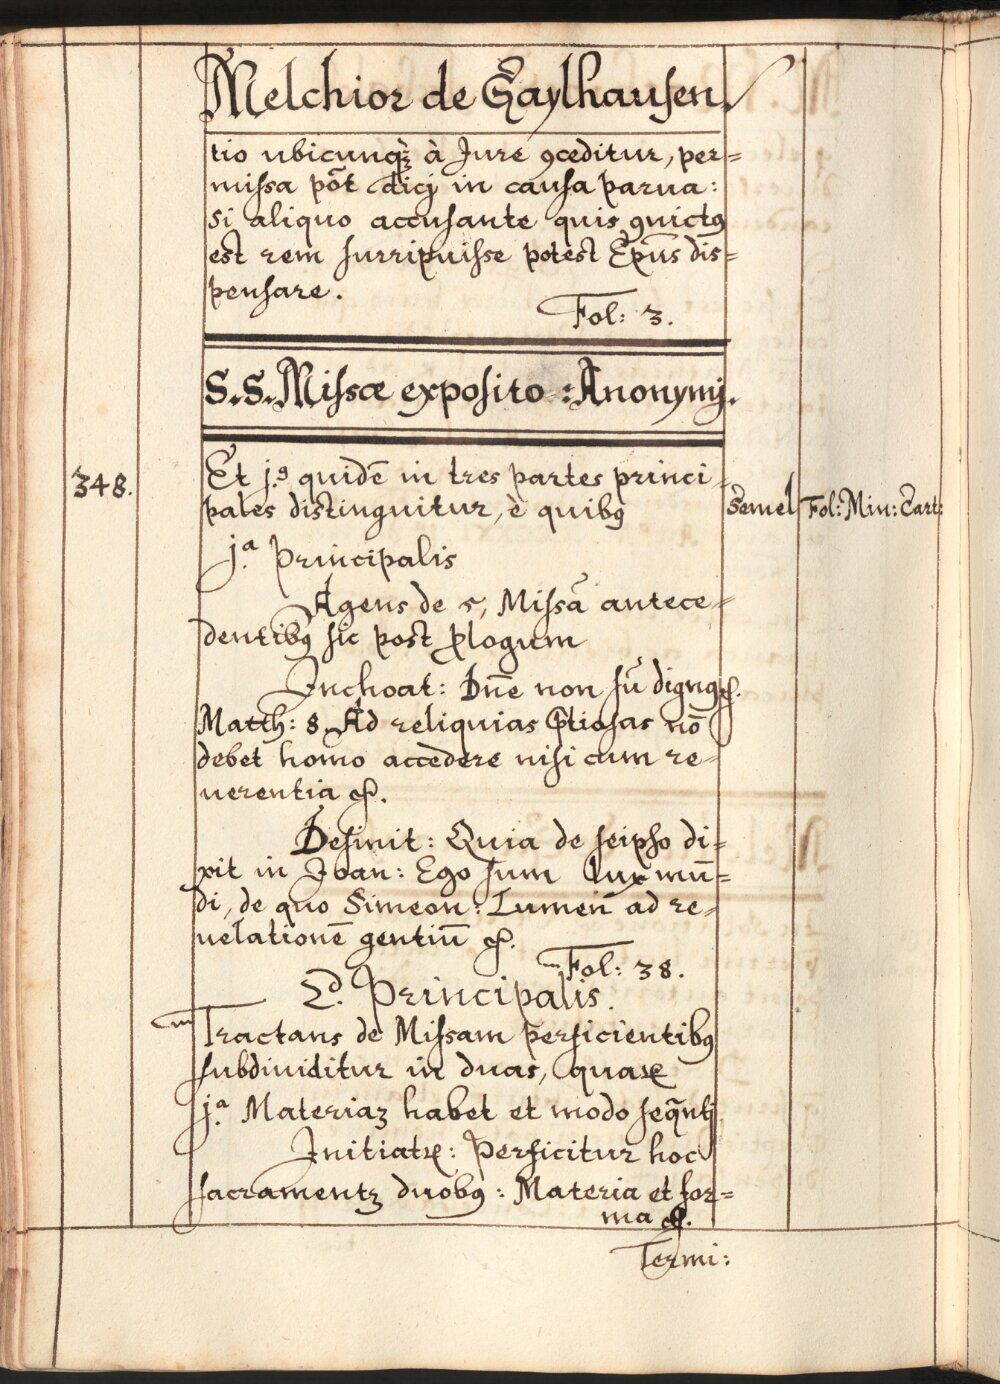 Melchior de Gaylhausen.
tio ubicunqꝫ à Jure ꝯceditur, per=
missa põt dicj in causa parua:
Si aliquo accusante quis ꝯuictꝯ
est rem surripuisse potest Ep̃us dis=
pensare.
Fol: 3.
S.S. Missæ exposito: Anonymj.
348.
Et j.ꝯ quidē in tres partes princi=
pales distinguitur, è quibꝯ
Semel
Fol: Min: Cart:
j.ª Principalis
Agens de 5, Missã antece=
dentibꝯ sic post ꝓlogum
Inchoat: Dñe non sũ dignꝯ ꝛc.
Matth: 8. Ad reliquias p̄tiosas nō
debet homo accedere nisi cum re=
uerentia ꝛc.
Desinit: Quia de seipso di=
xit in Joan: Ego sum lux mun̄=
di, de quo Simeon: Lumen ad re=
uelationē gentiū ꝛc.
Fol: 38.
2.ᵈ Principalis.
Tractans de Missam perficientibꝯ
subdiuiditur in duas, quaꝝ
j.ª Materiaꝫ habet et modo seq̃ntj
Initiatꝝ: Perficitur hoc
sacramentꝫ duobꝯ: Materia et for=
ma ꝛc.
Termi: